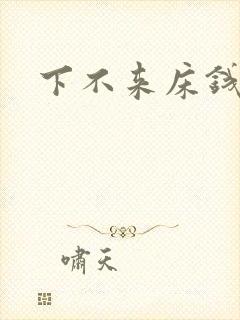 下不来床钱
啸天